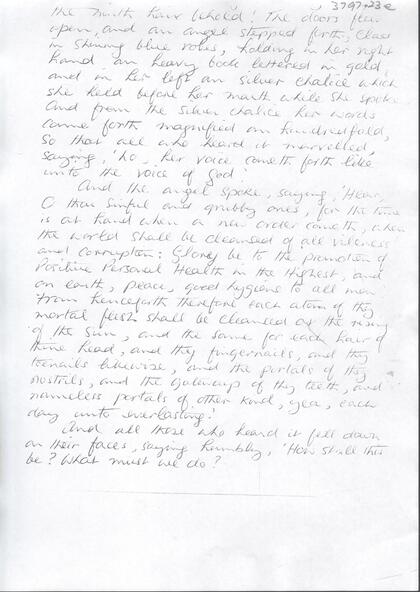 3797-23e
the ninth hour behold! The doors flew
open, and an angel stepped forth, clad
in shining blue robes, holding in her right
hand an heavy book lettered in gold,
and in her left an silver chalice which
she held before her mouth while she spoke.
And from the silver chalice her words
came forth magnified an hundredfold,
so that all who heard it marvelled,
saying, 'Lo, her voice cometh forth like
unto the voice of God.'
And the angel spoke, saying, 'Hear,
O thou sinful and grubby ones, for the time
is at hand when a new order cometh, when
the world shall be cleansed of all vileness
and corruption: Glory be to the promotion of
Positive Personal Health in the Highest, and
on earth, peace, good hygiene to all men
From henceforth therefore each atom of thy
mortal flesh shall be cleansed at the rising
of the sun, and the same for each hair of
thine head, and thy fingernails, and thy
toenails likewise, and the portals of thy
nostrils, and the gateways of thy teeth, and
nameless portals of other kind, yea, each
day unto everlasting.'
And all those who heard it fell down
on their faces, saying humbly, 'How shall this
be? What must we do?